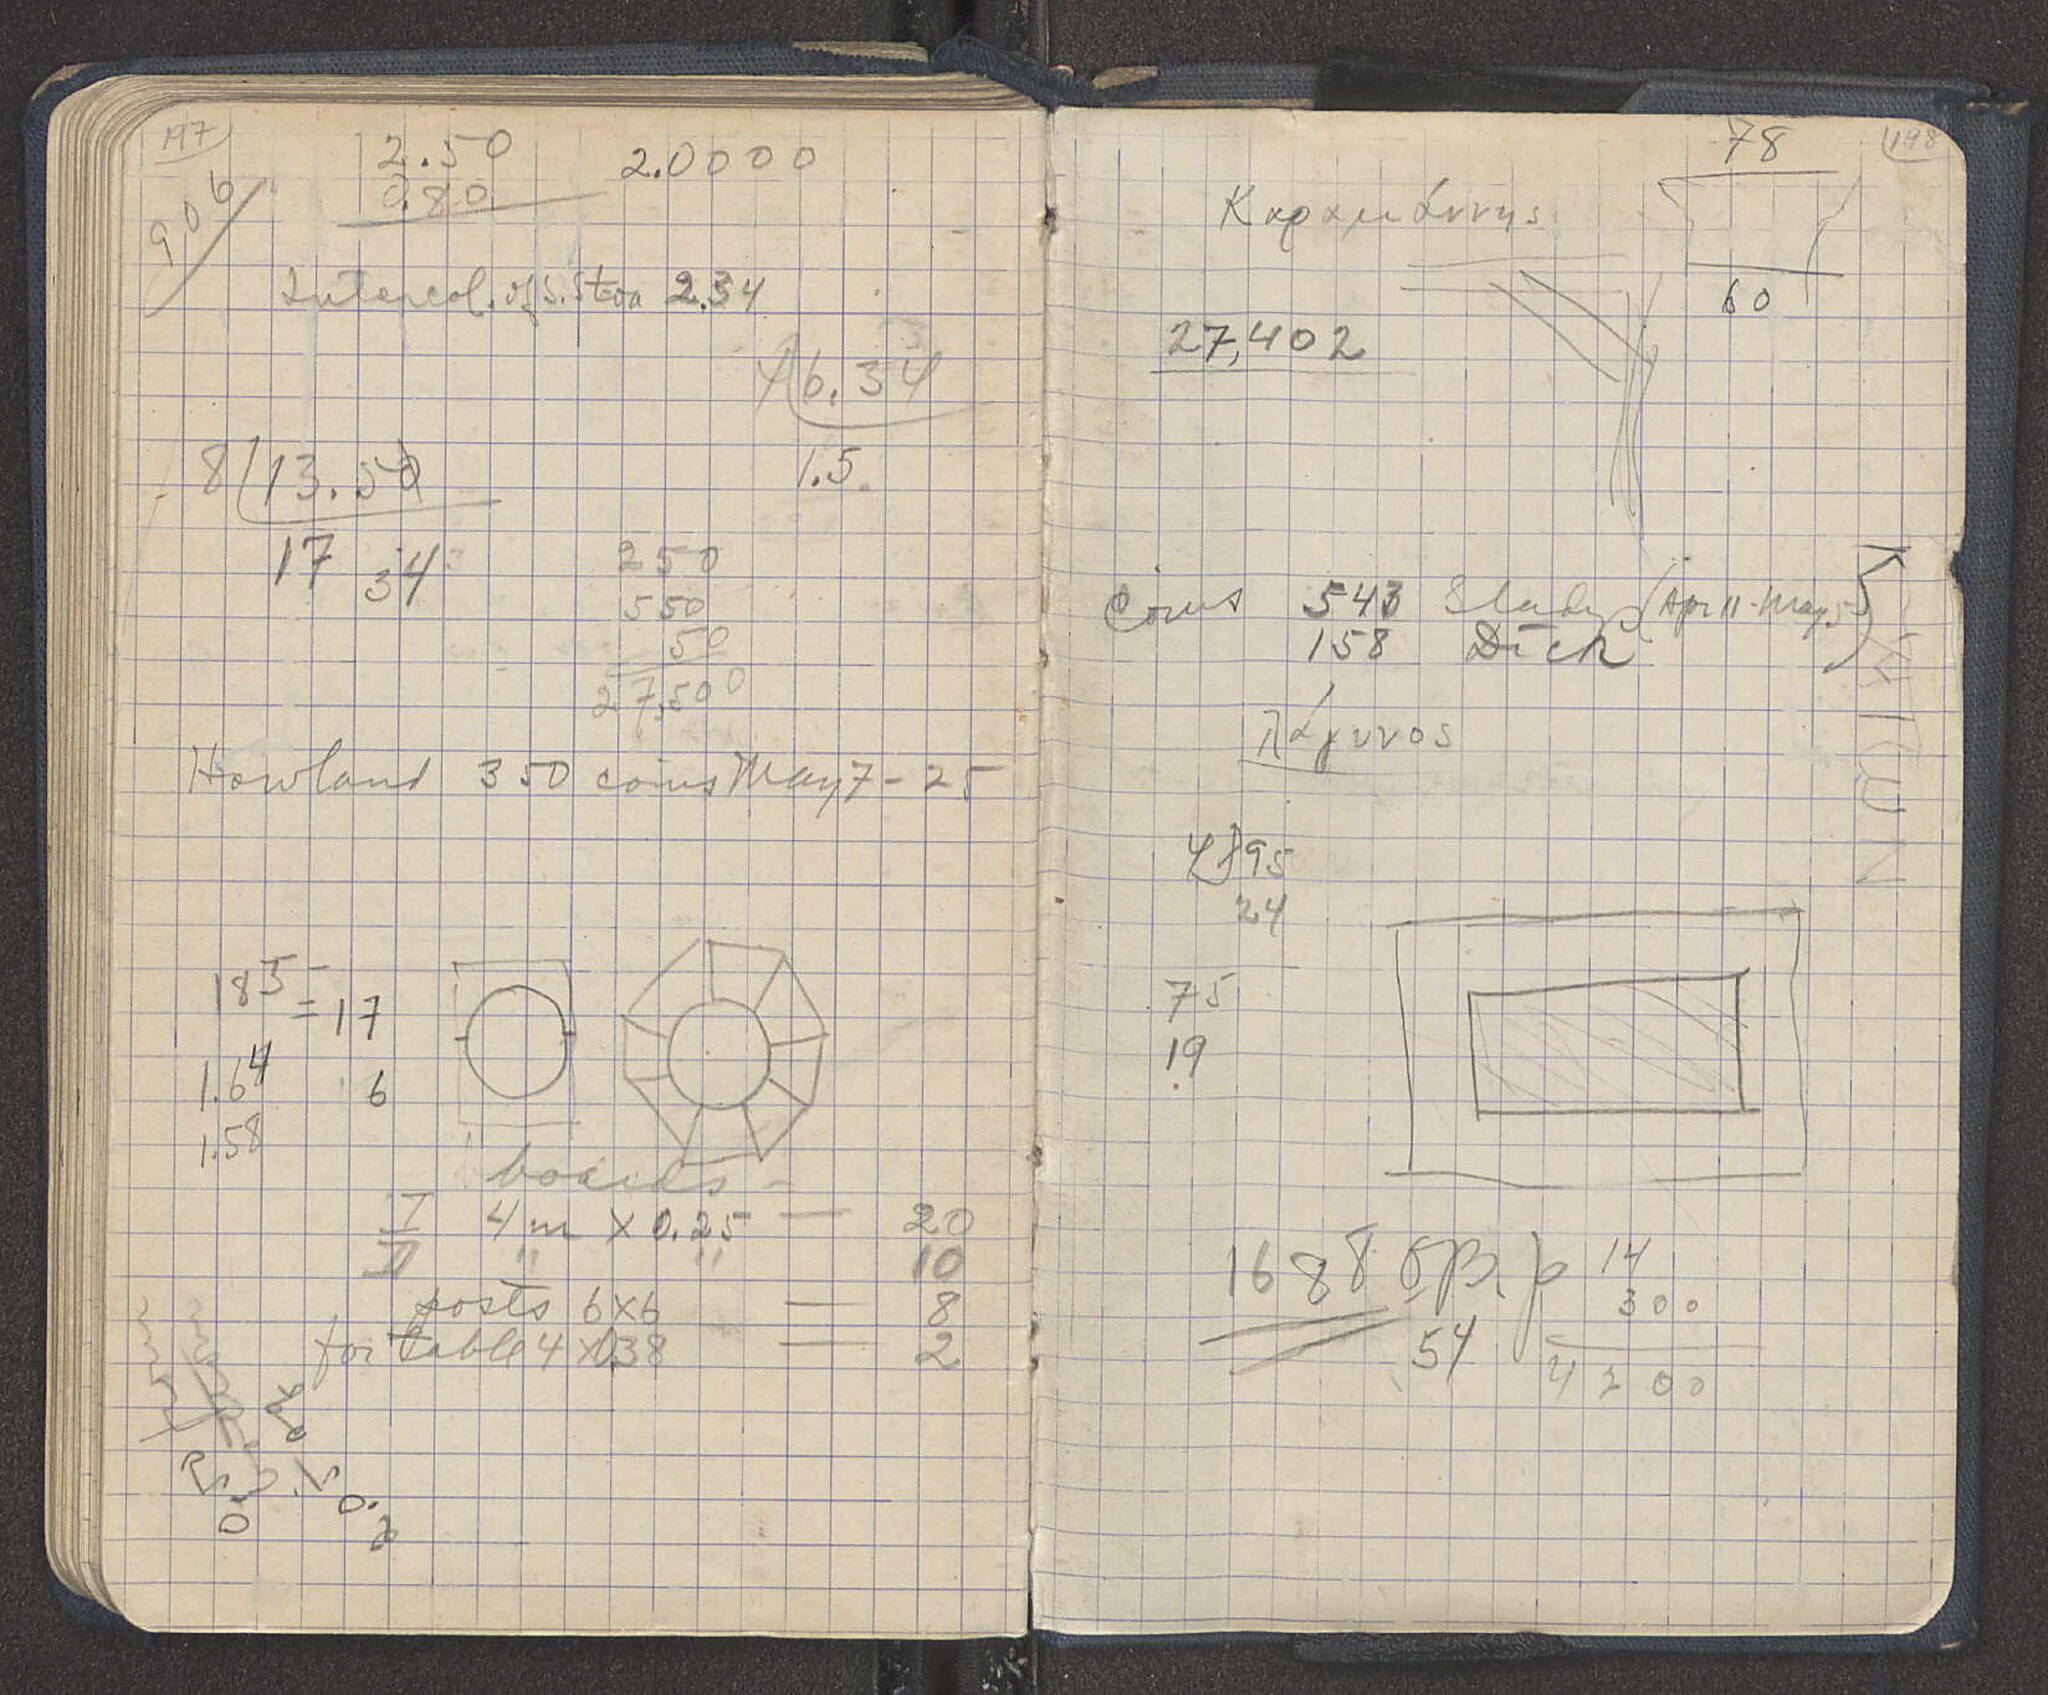 197
2.50 2.0000
0.80
9.06
Intercol. of S. Stoa 2.34
4 6.34
1.5
8 13.50
17 34
250
550
50
27,500
Howland 350 coins May 7-25
185 = 17
1.64 6
1.58
boards -
I 4 m × 0.25 — 20
II " " 10
posts 6×6 — 8
for table 4 × 0.38 — 2
198
78
60
27,402
Coins 543 Glady (Apr 11 - May 5)
158 Dick
λάγυνος
4 95
24
75
19
1688
54
14
300
4200